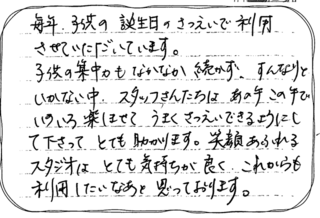 毎年、子供の誕生日のさつえいで利用
させていただいています。
子供の集中力もなかなか続かず、すんなりと
いかない中、スタッフさんたちは あの手この手で
いろいろ楽しませて うまくさつえいできるようにし
て下さって とても助かります。笑顔あふれる
スタジオは とても気持ちが良く、これからも
利用したいなあと思っております。